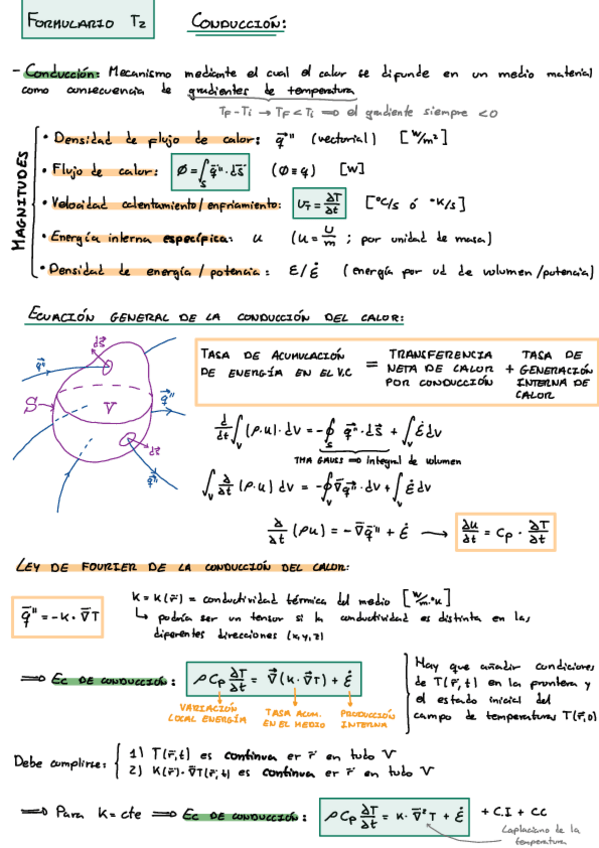 FORMULARIO T2 CONDUCCIÓN:
- Conducción: Mecanismo mediante el cual el calor se difunde en un medio material
como consecuencia de gradientes de temperatura
TF - Ti → TF < Ti ⟹ el gradiente siempre < 0
MAGNITUDES
• Densidad de flujo de calor: q⃗'' (vectorial) [W/m²]
• Flujo de calor: Ø = ∫s q⃗''· dS⃗ (Ø ≡ q) [W]
• Velocidad calentamiento/enfriamiento: UT = ∂T/∂t [°C/s ó °K/s]
• Energía interna específica: u (u = U/m ; por unidad de masa)
• Densidad de energía / potencia: E/Ė (energía por ud de volumen /potencia)
ECUACIÓN GENERAL DE LA CONDUCCIÓN DEL CALOR:
dS⃗
q⃗''
S
V
q⃗''
dS⃗
q⃗''
TASA DE ACUMULACIÓN DE ENERGÍA EN EL V.C = TRANSFERENCIA NETA DE CALOR POR CONDUCCIÓN + TASA DE GENERACIÓN INTERNA DE CALOR
d/dt ∫v (ρ·u)·dV = -∮s q⃗''·dS⃗ + ∫v Ė dV
THA GAUSS ⟹ integral de volumen
∫v ∂/∂t (ρ·u) dV = -∮v ∇⃗q⃗''·dV + ∫v Ė dV
∂/∂t (ρu) = -∇⃗q⃗'' + Ė → ∂u/∂t = Cp · ∂T/∂t
LEY DE FOURIER DE LA CONDUCCIÓN DEL CALOR:
q⃗'' = -K · ∇⃗T
K = K(r⃗) = conductividad térmica del medio [W/m·°K]
↳ podría ser un tensor si la conductividad es distinta en las
diferentes direcciones (x,y,z)
⟹ EC DE CONDUCCIÓN: ρ Cp ∂T/∂t = ∇⃗(K · ∇⃗T) + Ė
VARIACIÓN LOCAL ENERGÍA
TASA ACUM. EN EL MEDIO
PRODUCCIÓN INTERNA
Hay que añadir condiciones
de T(r⃗,t) en la frontera y
el estado inicial del
campo de temperaturas T(r⃗,0)
Debe cumplirse:
1) T(r⃗,t) es continua en r⃗ en todo V
2) K(r⃗)·∇T(r⃗,t) es continua en r⃗ en todo V
⟹ Para K = cte ⟹ EC DE CONDUCCIÓN: ρ Cp ∂T/∂t = K · ∇⃗²T + Ė + C.I + CC
Laplaciano de la
temperatura